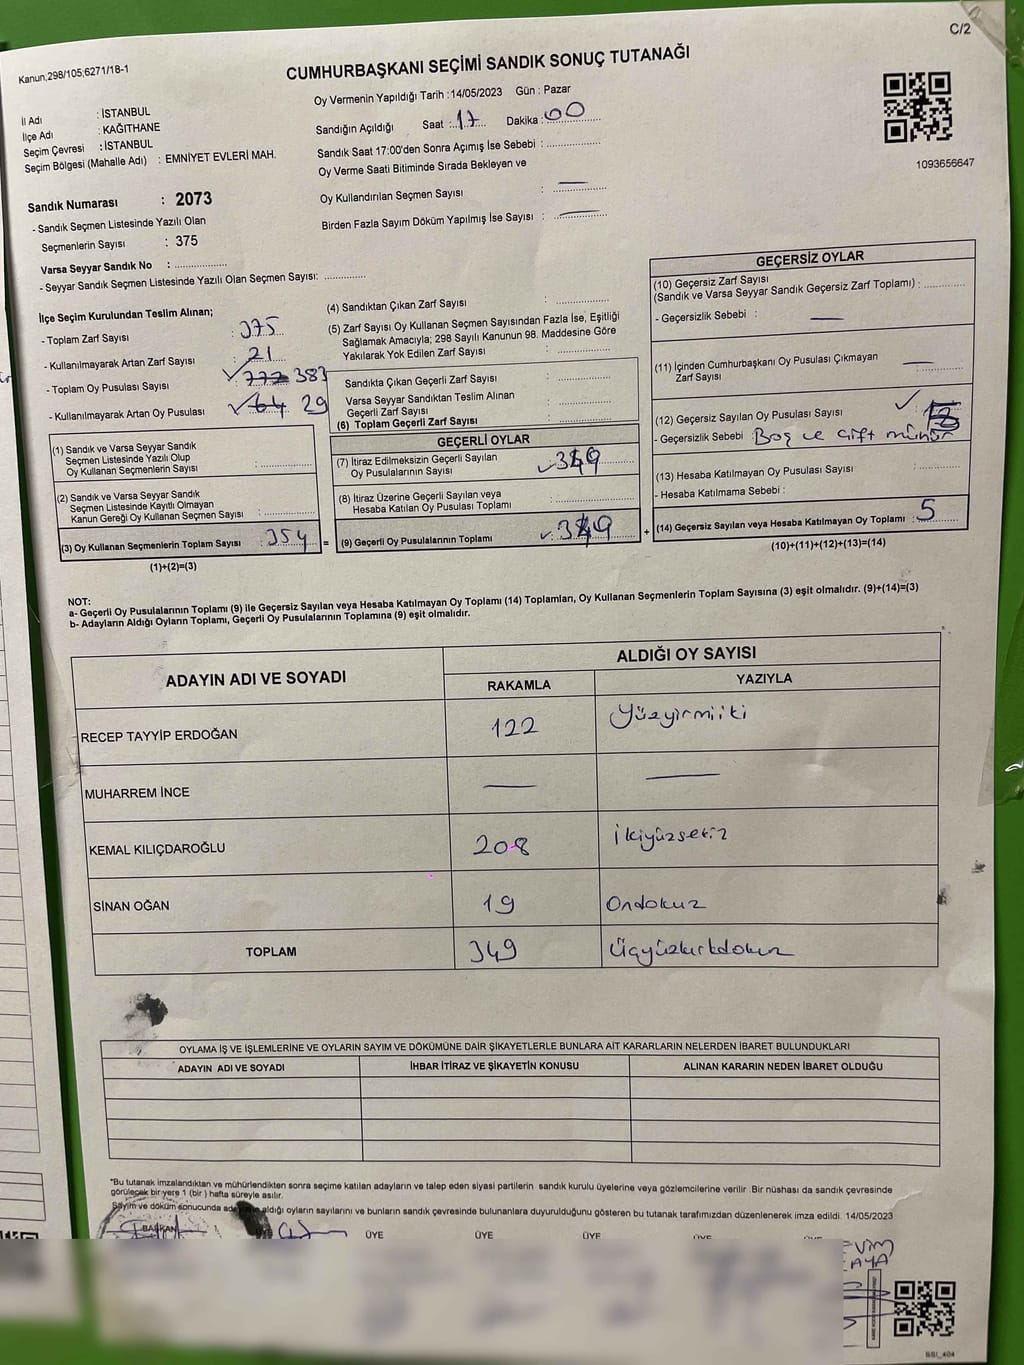 C/2
Kanun;298/105;6271/18-1
CUMHURBAŞKANI SEÇİMİ SANDIK SONUÇ TUTANAĞI
Oy Vermenin Yapıldığı Tarih :14/05/2023 Gün : Pazar
İl Adı : İSTANBUL
İlçe Adı : KAĞITHANE
Seçim Çevresi : İSTANBUL
Seçim Bölgesi (Mahalle Adı) : EMNİYET EVLERİ MAH.
Sandığın Açıldığı Saat : 17 Dakika : 00
Sandık Saat 17:00'den Sonra Açımış İse Sebebi :
Oy Verme Saati Bitiminde Sırada Bekleyen ve
Oy Kullandırılan Seçmen Sayısı : —
Birden Fazla Sayım Döküm Yapılmış İse Sayısı : —
1093656647
Sandık Numarası : 2073
- Sandık Seçmen Listesinde Yazılı Olan
Seçmenlerin Sayısı : 375
Varsa Seyyar Sandık No :
- Seyyar Sandık Seçmen Listesinde Yazılı Olan Seçmen Sayısı:
İlçe Seçim Kurulundan Teslim Alınan;
- Toplam Zarf Sayısı : 375
- Kullanılmayarak Artan Zarf Sayısı : 21
- Toplam Oy Pusulası Sayısı 383
- Kullanılmayarak Artan Oy Pusulası 64 29
(1) Sandık ve Varsa Seyyar Sandık
Seçmen Listesinde Yazılı Olup
Oy Kullanan Seçmenlerin Sayısı :
(2) Sandık ve Varsa Seyyar Sandık
Seçmen Listesinde Kayıtlı Olmayan
Kanun Gereği Oy Kullanan Seçmen Sayısı :
(3) Oy Kullanan Seçmenlerin Toplam Sayısı : 354 =
(1)+(2)=(3)
(4) Sandıktan Çıkan Zarf Sayısı :
(5) Zarf Sayısı Oy Kullanan Seçmen Sayısından Fazla İse, Eşitliği
Sağlamak Amacıyla; 298 Sayılı Kanunun 98. Maddesine Göre
Yakılarak Yok Edilen Zarf Sayısı :
Sandıkta Çıkan Geçerli Zarf Sayısı :
Varsa Seyyar Sandıktan Teslim Alınan
Geçerli Zarf Sayısı :
(6) Toplam Geçerli Zarf Sayısı :
GEÇERLİ OYLAR
(7) İtiraz Edilmeksizin Geçerli Sayılan
Oy Pusulalarının Sayısı 349
(8) İtiraz Üzerine Geçerli Sayılan veya
Hesaba Katılan Oy Pusulası Toplamı :
(9) Geçerli Oy Pusulalarının Toplamı 349 +
GEÇERSİZ OYLAR
(10) Geçersiz Zarf Sayısı
(Sandık ve Varsa Seyyar Sandık Geçersiz Zarf Toplamı) :
- Geçersizlik Sebebi : —
(11) İçinden Cumhurbaşkanı Oy Pusulası Çıkmayan
Zarf Sayısı —
(12) Geçersiz Sayılan Oy Pusulası Sayısı
- Geçersizlik Sebebi Boş ve çift mühür
(13) Hesaba Katılmayan Oy Pusulası Sayısı :
- Hesaba Katılmama Sebebi :
(14) Geçersiz Sayılan veya Hesaba Katılmayan Oy Toplamı : 5
(10)+(11)+(12)+(13)=(14)
NOT:
a- Geçerli Oy Pusulalarının Toplamı (9) ile Geçersiz Sayılan veya Hesaba Katılmayan Oy Toplamı (14) Toplamları, Oy Kullanan Seçmenlerin Toplam Sayısına (3) eşit olmalıdır. (9)+(14)=(3)
b- Adayların Aldığı Oyların Toplamı, Geçerli Oy Pusulalarının Toplamına (9) eşit olmalıdır.
ADAYIN ADI VE SOYADI ALDIĞI OY SAYISI
RAKAMLA YAZIYLA
RECEP TAYYİP ERDOĞAN 122 Yüzyirmiiki
MUHARREM İNCE — —
KEMAL KILIÇDAROĞLU 208 İkiyüzsekiz
SİNAN OĞAN 19 Ondokuz
TOPLAM 349 Üçyüzkırkdokuz
OYLAMA İŞ VE İŞLEMLERİNE VE OYLARIN SAYIM VE DÖKÜMÜNE DAİR ŞİKAYETLERLE BUNLARA AİT KARARLARIN NELERDEN İBARET BULUNDUKLARI
ADAYIN ADI VE SOYADI İHBAR İTİRAZ VE ŞİKAYETİN KONUSU ALINAN KARARIN NEDEN İBARET OLDUĞU
"Bu tutanak imzalandıktan ve mühürlendikten sonra seçime katılan adayların ve talep eden siyasi partilerin sandık kurulu üyelerine veya gözlemcilerine verilir .Bir nüshası da sandık çevresinde
görülecek bir yere 1 (bir ) hafta süreyle asılır.
Sayım ve döküm sonucunda aldığı oyların sayılarını ve bunların sandık çevresinde bulunanlara duyurulduğunu gösteren bu tutanak tarafımızdan düzenlenerek imza edildi. 14/05/2023
BAŞKAN ÜYE ÜYE ÜYE